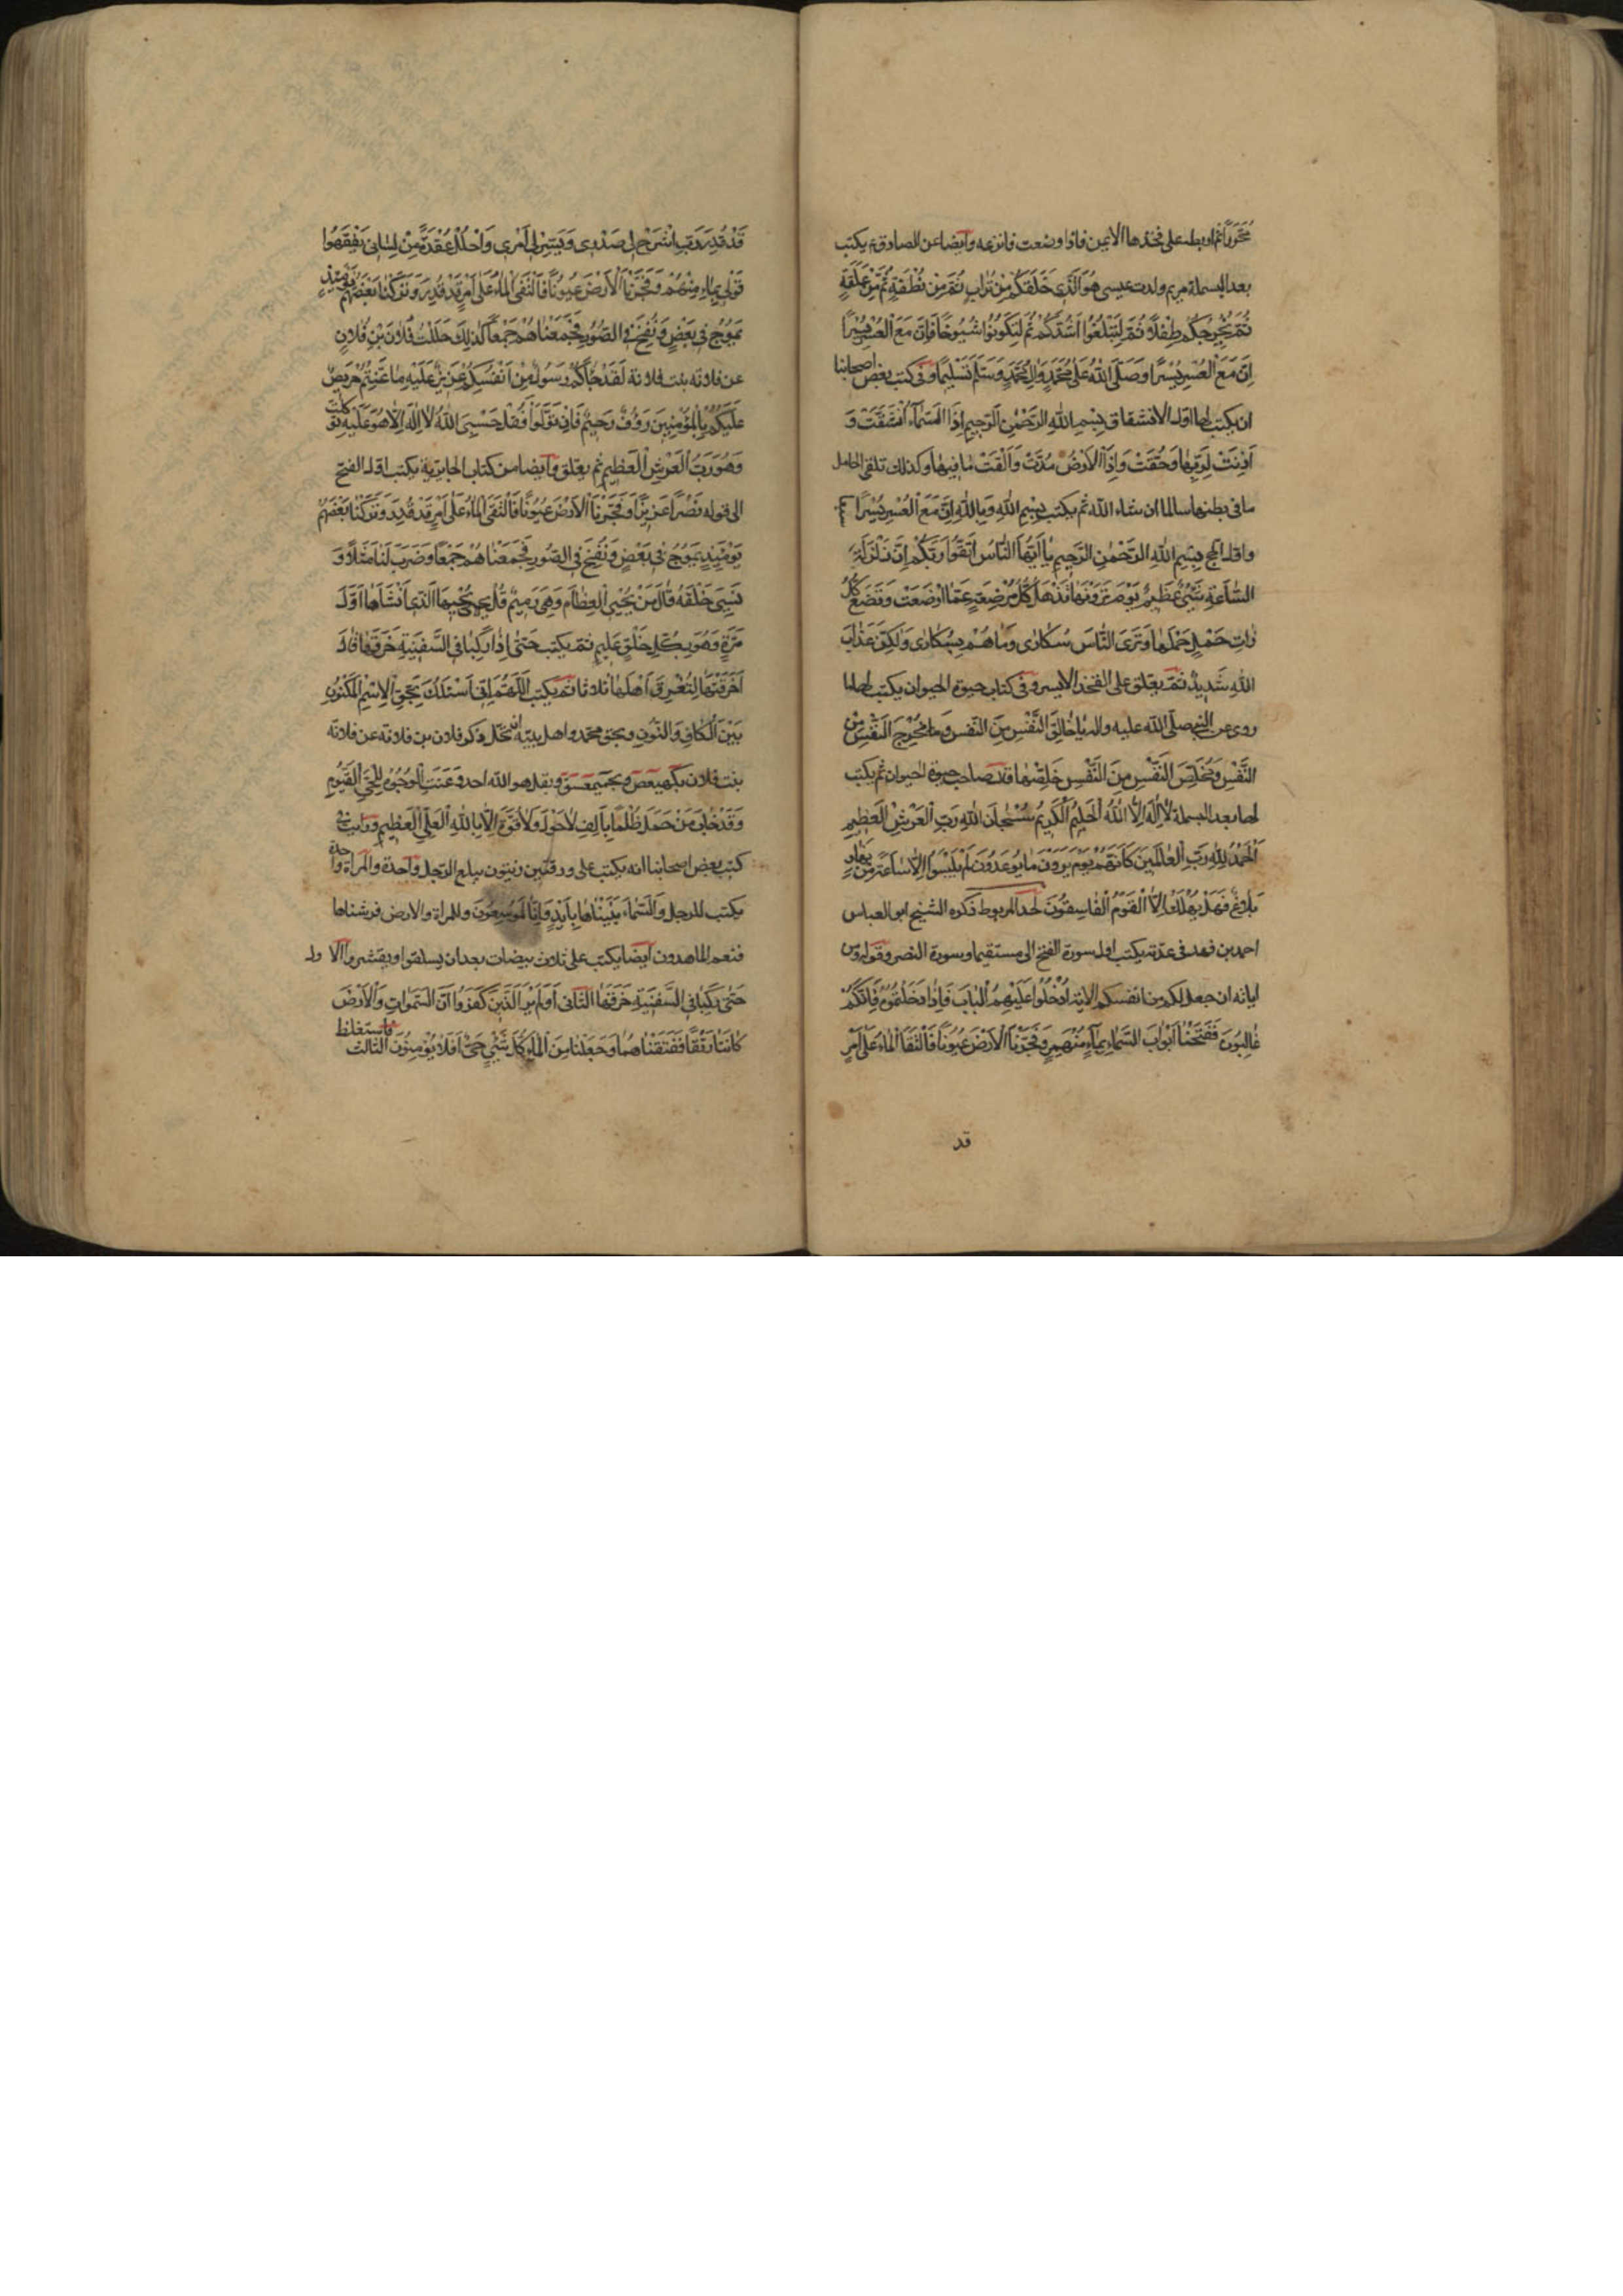 محررا ثم اربطه على فخذها الايمن فاذا وضعت فانزعه وايضا عن الصادق ع يكتب
بعد البسملة مريم ولدت عيسى هُوَ الَّذِي خَلَقَكُمْ مِنْ تُرَابٍ ثُمَّ مِنْ نُطْفَةٍ ثُمَّ مِنْ عَلَقَةٍ
ثُمَّ يُخْرِجُكُمْ طِفْلًا ثُمَّ لِتَبْلُغُوا اَشُدَّكُمْ ثُمَّ لِتَكُونُوا شُيُوخًا فَاِنَّ مَعَ الْعُسْرِ يُسْرًا
اِنَّ مَعَ الْعُسْرِ يُسْرًا وَصَلَّى اللهُ عَلَى مُحَمَّدٍ وَاٰلِ مُحَمَّدٍ وَسَلَّمَ تَسْلِيمًا وفى كتب بعض اصحابنا
ان يكتب لها اول الانشقاق بِسْمِ اللهِ الرَّحْمٰنِ الرَّحِيمِ اِذَا السَّمَاءُ انْشَقَّتْ وَ
اَذِنَتْ لِرَبِّهَا وَحُقَّتْ وَاِذَا الْاَرْضُ مُدَّتْ وَاَلْقَتْ مَا فِيهَا وكذلك تلقى الحامل
ما فى بطنها سالما ان شاء الله ثم يكتب بِسْمِ اللهِ وَبِاللهِ اِنَّ مَعَ الْعُسْرِ يُسْرًا
واول الحج بِسْمِ اللهِ الرَّحْمٰنِ الرَّحِيمِ يَا اَيُّهَا النَّاسُ اتَّقُوا رَبَّكُمْ اِنَّ زَلْزَلَةَ
السَّاعَةِ شَيْءٌ عَظِيمٌ يَوْمَ تَرَوْنَهَا تَذْهَلُ كُلُّ مُرْضِعَةٍ عَمَّا اَرْضَعَتْ وَتَضَعُ كُلُّ
ذَاتِ حَمْلٍ حَمْلَهَا وَتَرَى النَّاسَ سُكَارَى وَمَا هُمْ بِسُكَارَى وَلٰكِنَّ عَذَابَ
اللهِ شَدِيدٌ ثم يعلق على الفخذ الايسر وفى كتاب حيوة الحيوان يكتب لها ما
روى عن النبى صلى الله عليه واله يَا خَالِقَ النَّفْسِ مِنَ النَّفْسِ وَمُخْرِجَ النَّفْسِ مِنَ
النَّفْسِ وَمُخَلِّصَ النَّفْسِ مِنَ النَّفْسِ خَلِّصْهَا قال صاحب حيوة الحيوان ثم يكتب
لها بعد البسملة لَا اِلٰهَ اِلَّا اللهُ الْحَلِيمُ الْكَرِيمُ سُبْحَانَ اللهِ رَبِّ الْعَرْشِ الْعَظِيمِ
اَلْحَمْدُ لِلّٰهِ رَبِّ الْعَالَمِينَ كَاَنَّهُمْ يَوْمَ يَرَوْنَ مَا يُوعَدُونَ لَمْ يَلْبَثُوا اِلَّا سَاعَةً مِنْ نَهَارٍ
بَلَاغٌ فَهَلْ يُهْلَكُ اِلَّا الْقَوْمُ الْفَاسِقُونَ لحل المربوط ذكره الشيخ ابو العباس
احمد بن فهد فى عدته يكتب اول سورة الفتح الى مستقيما وسورة النصر وقوله ومن
اياته ان جعل لكم من انفسكم الاية اُدْخُلُوا عَلَيْهِمُ الْبَابَ فَاِذَا دَخَلْتُمُوهُ فَاِنَّكُمْ
غَالِبُونَ فَفَتَحْنَا اَبْوَابَ السَّمَاءِ بِمَاءٍ مُنْهَمِرٍ وَفَجَّرْنَا الْاَرْضَ عُيُونًا فَالْتَقَى الْمَاءُ عَلَى اَمْرٍ
قد
قَدْ قُدِرَ رَبِّ اشْرَحْ لِى صَدْرِى وَيَسِّرْ لِى اَمْرِى وَاحْلُلْ عُقْدَةً مِنْ لِسَانِى يَفْقَهُوا
قَوْلِى بِمَاءٍ مُنْهَمِرٍ وَفَجَّرْنَا الْاَرْضَ عُيُونًا فَالْتَقَى الْمَاءُ عَلَى اَمْرٍ قَدْ قُدِرَ وَتَرَكْنَا بَعْضَهُمْ يَوْمَئِذٍ
يَمُوجُ فِى بَعْضٍ وَنُفِخَ فِى الصُّورِ فَجَمَعْنَاهُمْ جَمْعًا كَذٰلِكَ حَلَلْتُ فُلَانَ بْنَ فُلَانٍ
عن فلانة بنت فلانة لَقَدْ جَاءَكُمْ رَسُولٌ مِنْ اَنْفُسِكُمْ عَزِيزٌ عَلَيْهِ مَا عَنِتُّمْ حَرِيصٌ
عَلَيْكُمْ بِالْمُؤْمِنِينَ رَؤُفٌ رَحِيمٌ فَاِنْ تَوَلَّوْا فَقُلْ حَسْبِىَ اللهُ لَا اِلٰهَ اِلَّا هُوَ عَلَيْهِ تَوَكَّلْتُ
وَهُوَ رَبُّ الْعَرْشِ الْعَظِيمِ ثم يعلق وايضا من كتاب الجابرية يكتب اول الفتح
الى قوله نَصْرًا عَزِيزًا وَفَجَّرْنَا الْاَرْضَ عُيُونًا فَالْتَقَى الْمَاءُ عَلَى اَمْرٍ قَدْ قُدِرَ وَتَرَكْنَا بَعْضَهُمْ
يَوْمَئِذٍ يَمُوجُ فِى بَعْضٍ وَنُفِخَ فِى الصُّورِ فَجَمَعْنَاهُمْ جَمْعًا وَضَرَبَ لَنَا مَثَلًا وَ
نَسِىَ خَلْقَهُ قَالَ مَنْ يُحْيِى الْعِظَامَ وَهِىَ رَمِيمٌ قُلْ يُحْيِيهَا الَّذِى اَنْشَاَهَا اَوَّلَ
مَرَّةٍ وَهُوَ بِكُلِّ خَلْقٍ عَلِيمٌ ثم يكتب حَتّٰى اِذَا رَكِبَا فِى السَّفِينَةِ خَرَقَهَا قَالَ
اَخَرَقْتَهَا لِتُغْرِقَ اَهْلَهَا ثلاثا ثم يكتب اَللّٰهُمَّ اِنِّى اَسْئَلُكَ بِحَقِّ الْاِسْمِ الْمَكْنُونِ
بَيْنَ الْكَافِ وَالنُّونِ وبحق محمد واهل بيته ان تحل ذكر فلان بن فلانة عن فلانة
بنت فلان بكهيعص وبحمعسق وبقل هو الله احد وَعَنَتِ الْوُجُوهُ لِلْحَىِّ الْقَيُّومِ
وَقَدْ خَابَ مَنْ حَمَلَ ظُلْمًا بِاَلْفِ لَا حَوْلَ وَلَا قُوَّةَ اِلَّا بِاللهِ الْعَلِىِّ الْعَظِيمِ ورايت فى
كتب بعض اصحابنا انه يكتب على ورقتين زيتون يبلع الرجل واحدة والمراة واحدة
يكتب للرجل وَالسَّمَاءَ بَنَيْنَاهَا بِاَيْدٍ وَاِنَّا لَمُوسِعُونَ وللمراة والارض فرشناها
فنعم الماهدون ايضا يكتب على ثلاث بيضات بعد ان يسلقوا ويقشروا الاول
حَتّٰى رَكِبَا فِى السَّفِينَةِ خَرَقَهَا الثانى اَوَلَمْ يَرَ الَّذِينَ كَفَرُوا اَنَّ السَّمٰوَاتِ وَالْاَرْضَ
كَانَتَا رَتْقًا فَفَتَقْنَاهُمَا وَجَعَلْنَا مِنَ الْمَاءِ كُلَّ شَيْءٍ حَىٍّ اَفَلَا يُؤْمِنُونَ الثالث فاستغلظ